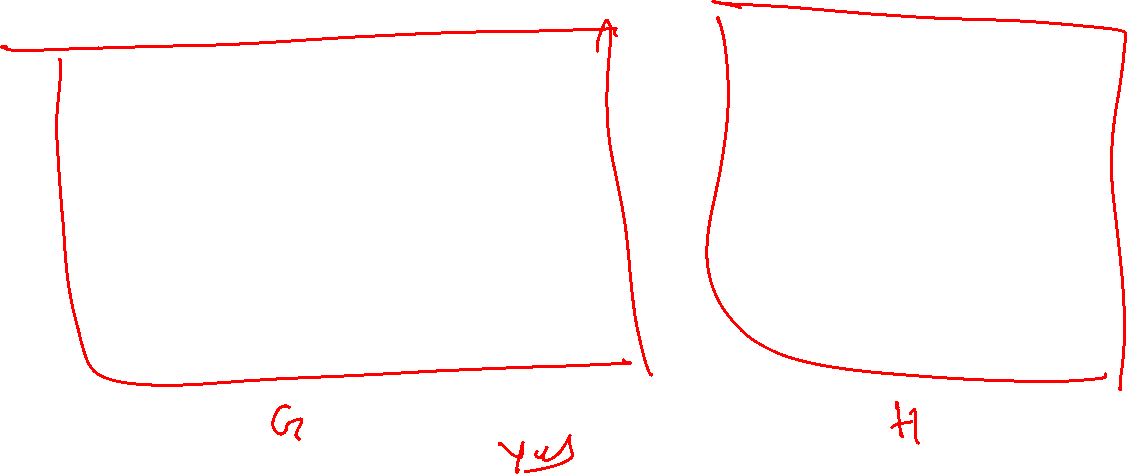 G H
yes